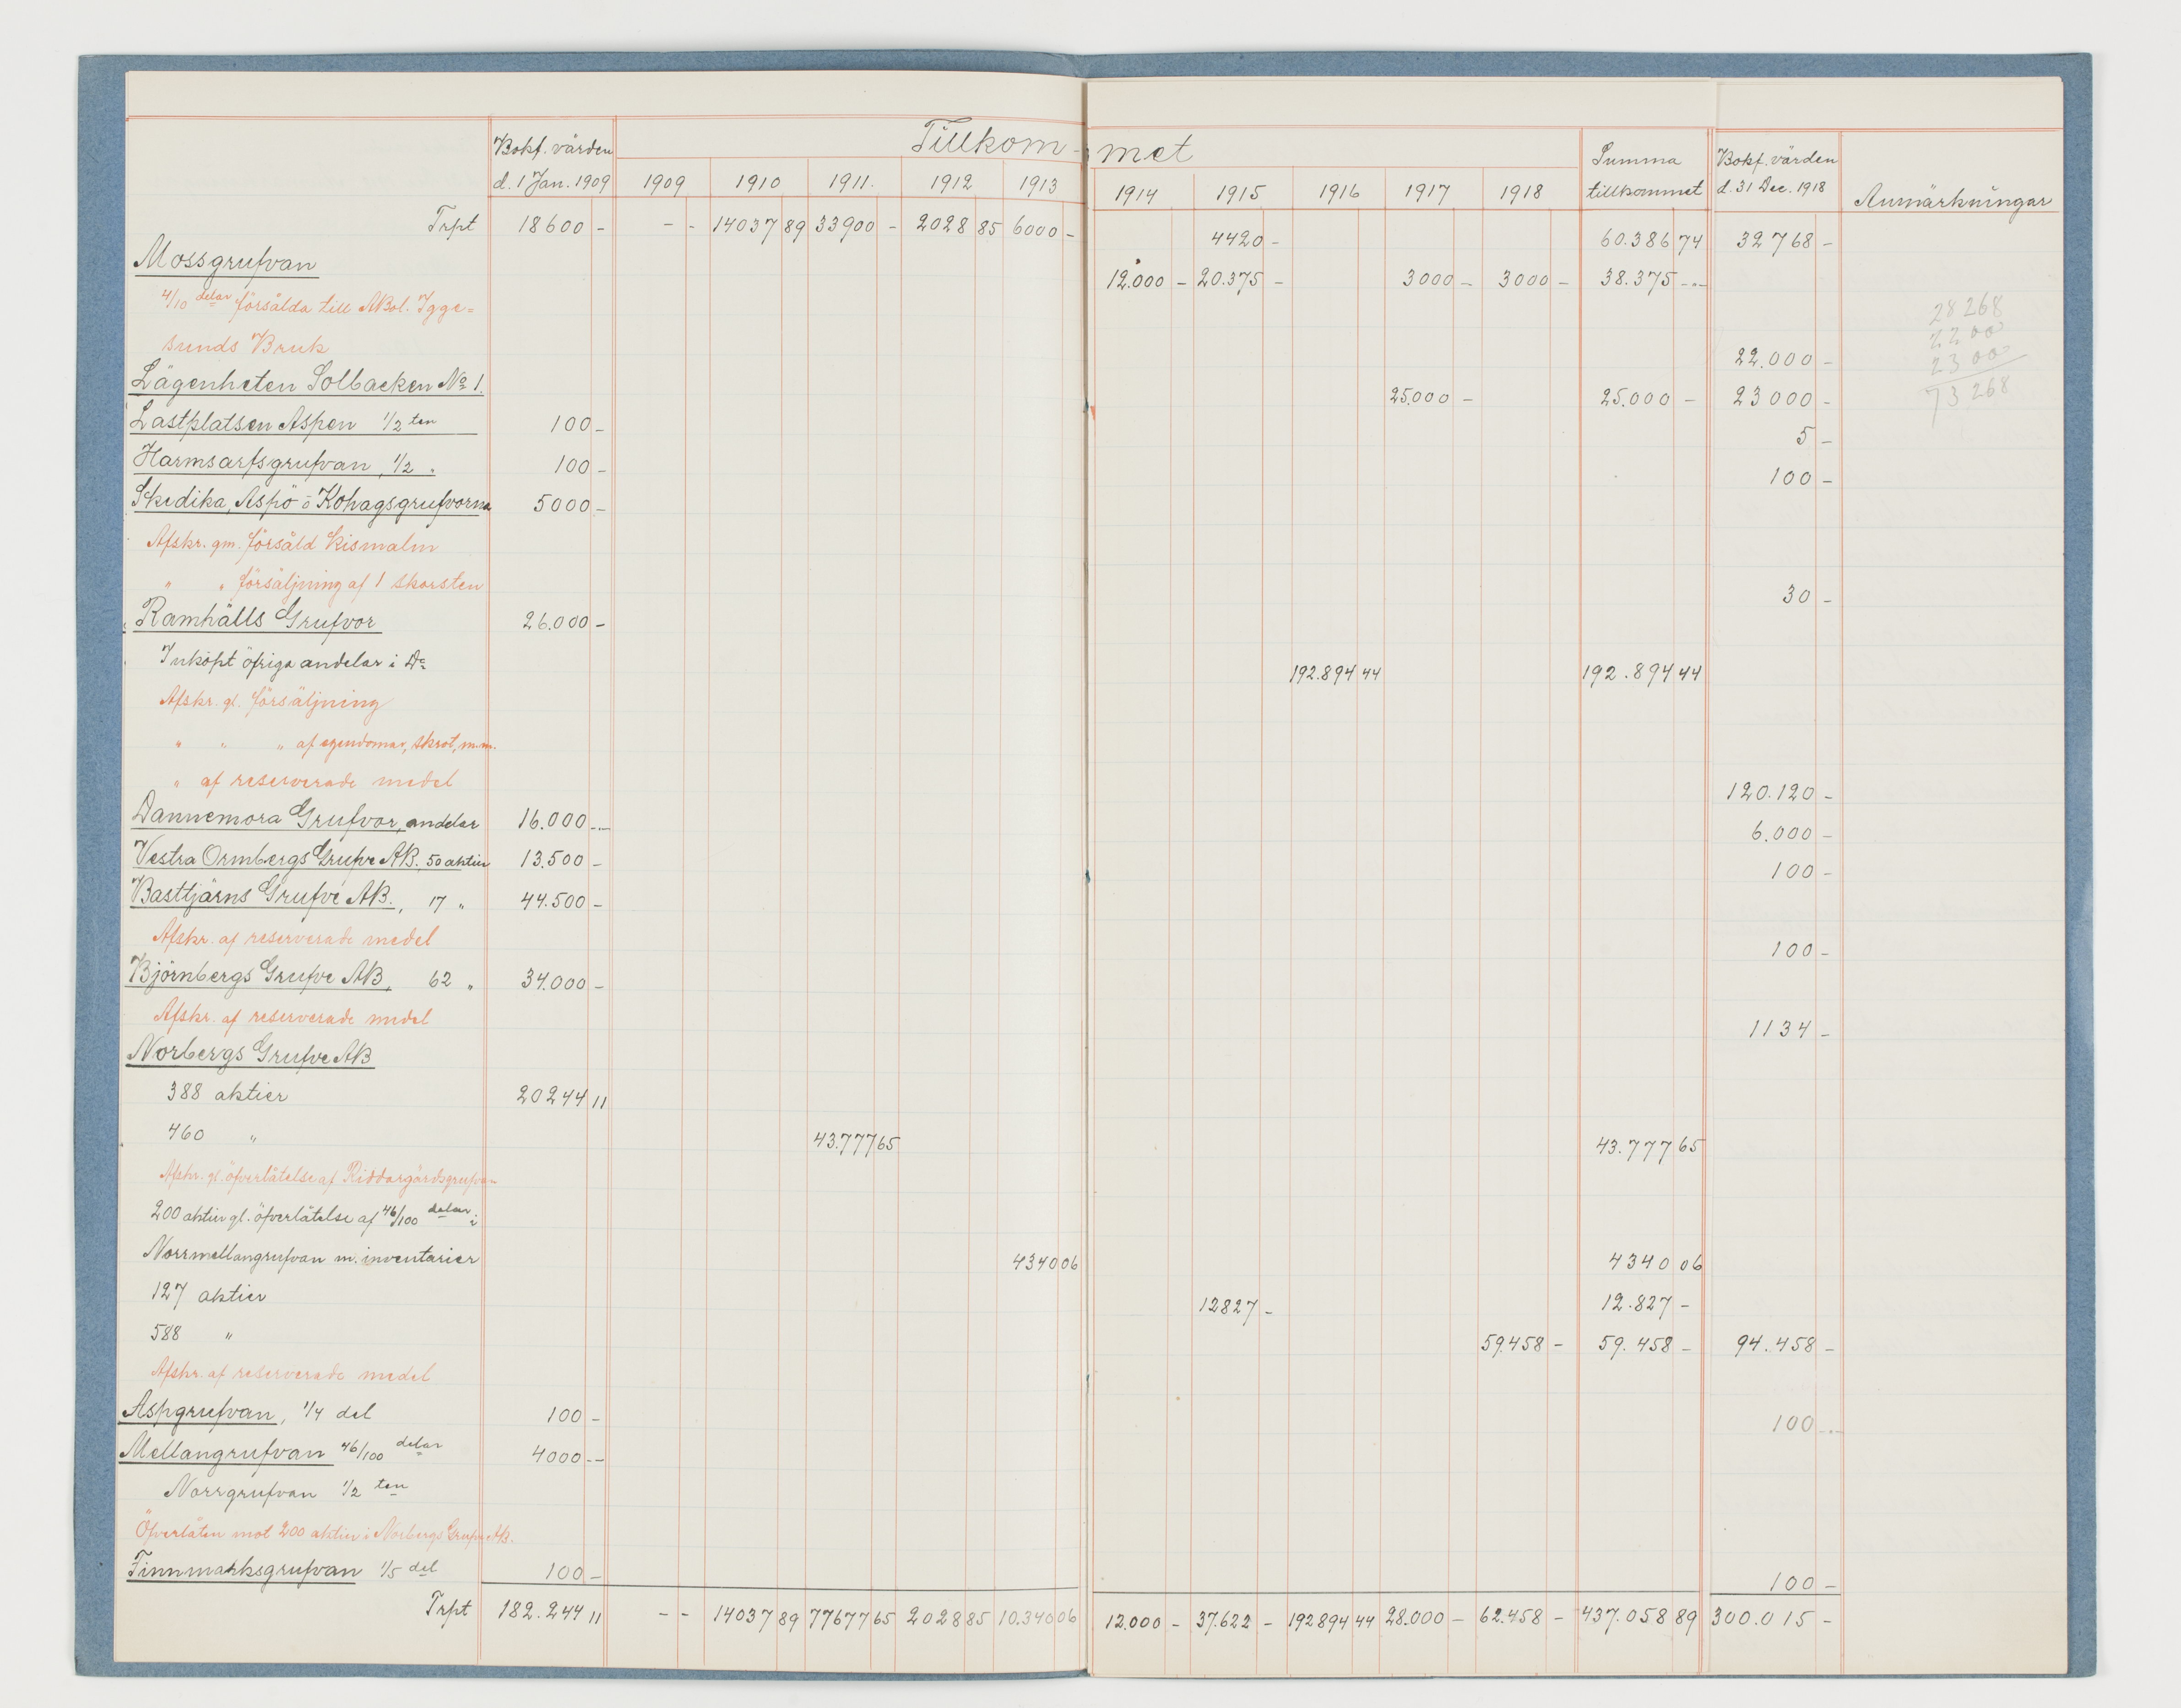 Bokf. värden Tillkommet Summa Bokf. värden
d. 1 Jan. 1909 1909 1910 1911. 1912 1913 1914 1915 1916 1917 1918 tillkommet d. 31 Dec. 1918 Anmärkningar
Trpt 18600 - - - 14037 89 33900 - 2028 85 6000 - 4420 - 60.386 74 32768 -
Mossgrufvan 12.000 - 20.375 - 3000 - 3000 - 38.375 -.-
4/10 delar försålda till ABol. Igge= 28268
sunds Bruk 22.000 - 2200
Lägenheten Solbacken No 1. 25.000 - 25.000 - 23000 - 2300
73268
Lastplatsen Aspen 1/2 ten 100 - 5 -
Harmsarfsgrufvan, 1/2 " 100 - 100 -
Skedika, Aspö o Kohagsgrufvorna 5000 -
Afskr. gm. försåld kismalm
" " försäljning af 1 skorsten 30 -
Ramhälls Grufvor 26.000 -
Inköpt öfriga andelar i Do 192.894 44 192.894 44
Afskr. gl. försäljning
" " " af egendomar, skrot, m.m.
" af reserverade medel 120.120 -
Dannemora Grufvor, andelar 16.000 -.- 6.000 -
Vestra Ormbergs Grufve AB. 50 aktier 13.500 - 100 -
Basttjärns Grufve AB., 17 " 44.500 -
Afskr. af reserverade medel 100 -
Björnbergs Grufve AB, 62 " 34.000 -
Afskr. af reserverade medel 1134 -
Norbergs Grufve AB
388 aktier 20244 11
460 " 43.777 65 43.777 65
Afskr. gl. öfverlåtelse af Riddargårdsgrufvan
200 aktier gl. öfverlåtelse af 46/100 delar i
Norrmellangrufvan m. inventarier 4340 06 4340 06
127 aktier 12827 - 12.827 -
588 " 59.458 - 59.458 - 94.458 -
Afskr. af reserverade medel
Aspgrufvan, 1/4 del 100 - 100 -.-
Mellangrufvan 46/100 delar 4000 --
Norrgrufvan 1/2 ten
Öfverlåten mot 200 aktier i Norbergs Grufve AB.
Finnmarksgrufvan 1/5 del 100 - 100 -
Trpt 182.244 11 - - 14037 89 77677 65 2028 85 10.340 06 12.000 - 37.622 - 192894 44 28.000 - 62.458 - 437.058 89 300.015 -